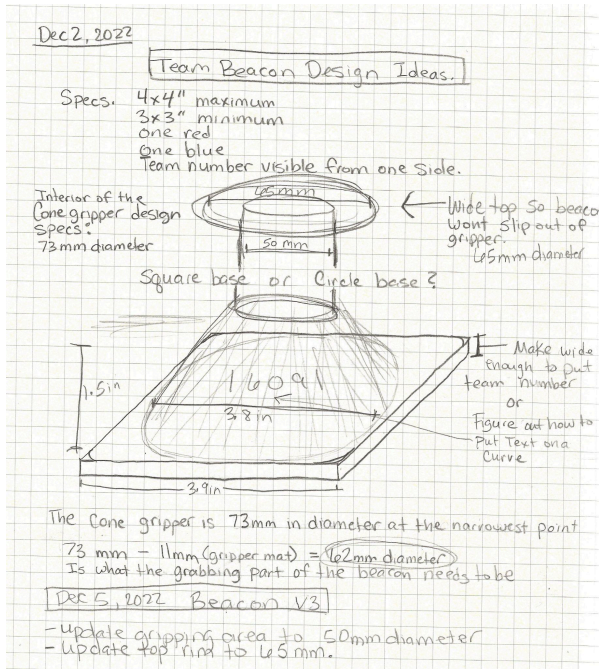 Dec 2, 2022
Team Beacon Design Ideas.
Specs. 4x4" maximum
3x3" minimum
one red
one blue
Team number visible from one side.
Interior of the
Cone gripper design
specs:
73mm diameter
65mm
50 mm
Wide top so beaco
wont slip out of
gripper.
65mm diameter
Square base or Circle base?
1.5in
16091
3.8in
3.9in
Make wide
enough to put
team number
or
Figure out how to
Put Text on a
Curve
The Cone gripper is 73mm in diameter at the narrowest point
73 mm - 11mm (gripper mat) = 62mm diameter
Is what the grabbing part of the beacon needs to be
Dec 5, 2022 Beacon V3
- update gripping area to 50mm diameter
- update top ring to 65mm.